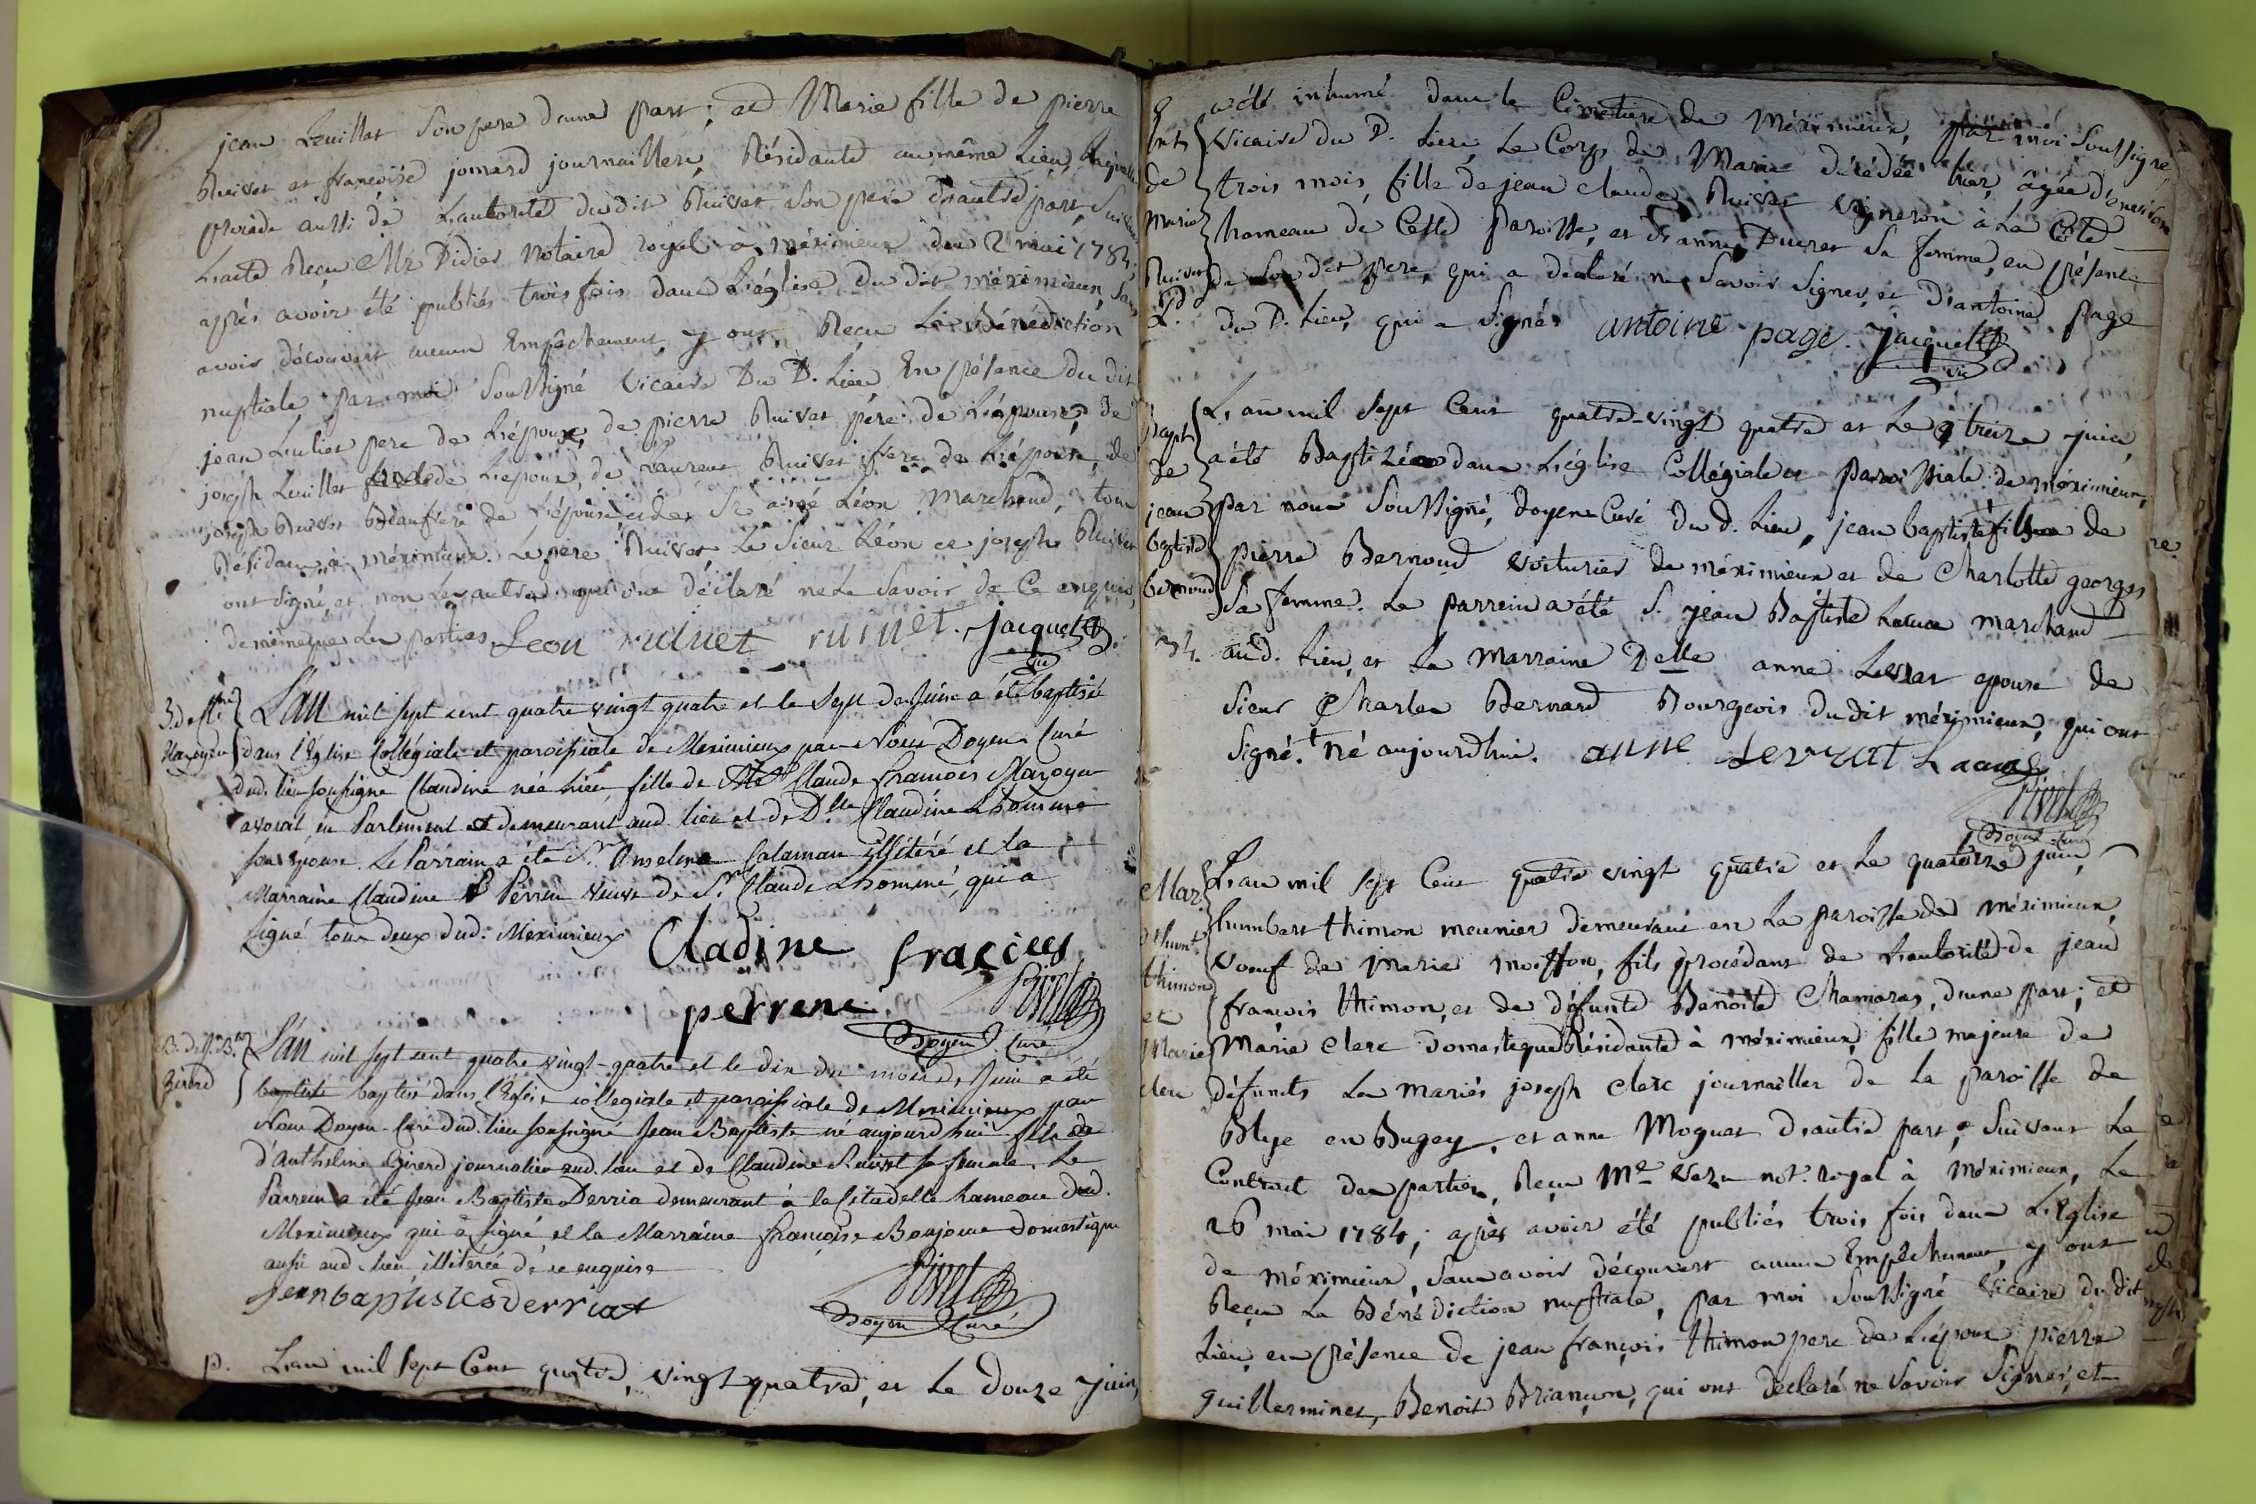 jean Leuillet son pere d'une part; et Marie fille de pierre
Ruivet et françoise jomard journaillere, Résidante au même Lieu,
procède aussi de L'autorité dudit Ruivet son pere d'autre part, suivant
L'acte Reçu Mr Didier notaire royal à méximieux du 2 mai 1784,
après avoir été publiés trois fois dans L'église du dit méximieux, sans
avoir découvert aucun Empêchement, y ont Reçu La Bénédiction
nuptiale par moi soussigné vicaire Du D. Lieu En présence du dit
jean pere de L'époux, de pierre Ruivet père de L'épouse, de
joseph Leuillet de L'époux, de Laurent Ruivet frere de L'épouse, de
joseph Ruivet beaufrere de L'épouse et de Sr aimé Léon Marchand, tous
Résidans à méximieux. Le père Ruivet Le Sieur Léon et joseph Ruivet
ont signé, et non Les autres qui ont déclaré ne Le savoir de Ce enquis,
de même que Les parties Leon ruivet ruivet. Jacquet
vic
B. de
Mazoyer
L'an mil sept cent quatre vingt quatre et le sept de Juin a été baptisée
dans l'Eglise Collégiale et paroissiale de Meximieux par Nous Doyen Curé
dud. lieu soussigné Claudine née hier fille de Claude François Mazoyer
avocat en Parlement et demeurant aud. lieu et de Dlle Claudine Lhomme
son épouse. Le Parrain a été Sr. Anselme Calamau illitéré et la
Marraine Claudine Perren veuve de Sr. Claude Lhomme, qui a
signé tous deux dud. Meximieux
Cladine fracies
perrene
Pivet
Doyen Curé
B. de J. B.te
Girerd
L'an mil sept cent quatre vingt-quatre et le dix du mois de Juin a été
baptisé baptisé dans l'Eglise collegiale et paroissiale de Meximieux par
Nous Doyen-Curé dud. lieu soussigné Jean Baptiste né aujourd'hui fils de
d'Anthelme Girerd journalier aud. lieu et de Claudine Ruivet sa femme. Le
Parrein a été Jean Baptiste Derria demeurant à la Citadelle hameau dud.
Meximieux qui a signé et la Marraine françoise Bonjour domestique
aussi aud. lieu illiterée de ce enquise
jeanbaptistesderriat
Pivet
Doyen Curé
p. L'an mil sept Cent quatre, vingt quatre, et Le douze juin,
Ent
de
Marie
Ruivet
a été inhumé dans le Cimetiere de Méximieux, par moi soussigné
vicaire du D. Lieu, Le Corps de Marie décédée hier, âgée d'environ
trois mois, fille de jean claude Ruivet vigneron à La Côte
hameau de Cette paroisse, et d'anne Ducret sa femme, en présence
de son dit pere, qui a declaré ne savoir signer, et d'antoine page
du D. Lieu, qui a signé antoine page. Jacquet
vic
Bapt
de
jean
baptiste
bernoud
L'an mil sept Cent quatre-vingt quatre et Le treize juin,
a été Baptizé dans L'église Collégiale et paroissiale de méximieux,
par nous soussigné, doyen-Curé du d. Lieu, jean baptiste † fils de
pierre Bernoud voiturier de méximieux et de Charlotte georges
sa femme. Le parrein a été s. jean Baptiste Lacua marchand
34. aud. Lieu, et La marraine Delle anne Levrat epouse de
sieur Charles Bernard Bourgeois dudit méximieux, qui ont
signé. † né aujourdhui. anne Levrat Lacua
Pivet
Doyen Curé
Mar
d'humt
thimon
et
Marie
clerc
L'an mil sept Cent quatre vingt quatre et Le quatorze juin,
humbert thimon meunier demeurant en La paroisse de méximieux,
voeuf de Marie moisson, fils procédant de L'autorité de jean
françois thimon, et de défunte Benoite Chamaras, d'une part; et
Marie clerc domestique Résidante à méximieux, fille majeure de
défunts Les mariés joseph clerc journailler de La paroisse de
Blye en Bugey, et anne Moguet d'autre part; suivant Le
Contract des parties, Reçu Me not. royal à Méximieux, Le
26 mai 1784; après avoir été publiés trois fois dans L'Eglise
de méximieux, sans avoir découvert aucun Empêchement, y ont
Reçu La Bénédiction nuptiale, par moi soussigné vicaire du dit
Lieu, en présence de jean françois thimon pere de L'époux, pierre
guillerminet, Benoit Briançon, qui ont declaré ne savoir signer, et